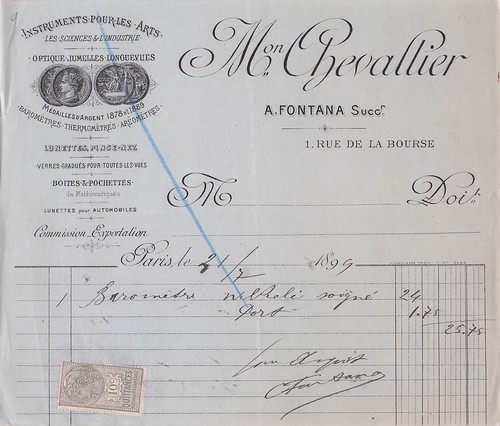 INSTRUMENTS·POUR·LES·ARTS
LES·SCIENCES & L'INDUSTRIE·
OPTIQUE·JUMELLES·LONGUEVUES
MÉDAILLES D'ARGENT 1878 et 1889
·BAROMÈTRES·THERMOMÈTRES·ARÉOMÈTRES·
LUNETTES, PINCE-NEZ
·VERRES·GRADUÉS·POUR·TOUTES·LES·VUES
BOITES & POCHETTES
de Mathématiques
LUNETTES pour AUTOMOBILES
Commission Exportation
Mon Chevallier
A. FONTANA Succr
1, RUE DE LA BOURSE
M Doit
Paris, le 21/7 1899
1 Baromètre nikelé soigné 24
Port 1.75
25.75
pour Acquit
Fontana
10c
QUITTANCES